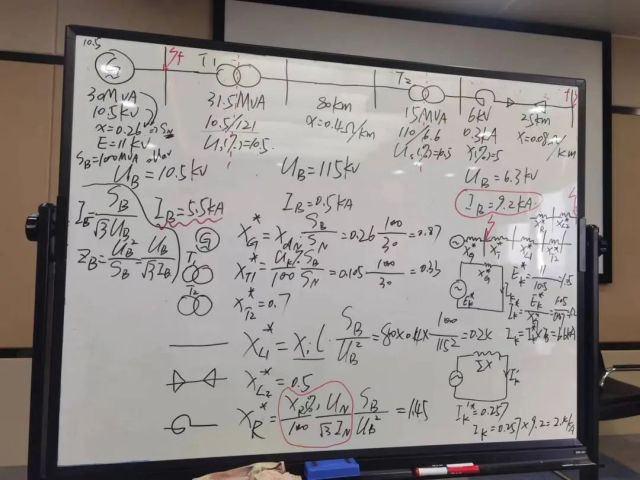 10.5
G
T1
T2
30MVA
10.5kV
X=0.26
E=11kV
SB=100MVA
31.5MVA
10.5/121
Us(%)=10.5
80km
X=0.4Ω/km
15MVA
110/6.6
Us(%)=10.5
6kV
0.3kA
X(%)=5
2.5km
X=0.08Ω/km
UB=10.5kV
UB=115kV
UB=6.3kV
IB=SB/√3UB
IB=5.5kA
IB=0.5kA
IB=9.2kA
ZB=UB²/SB=UB/√3IB
G
XG*=XdN SB/SN=0.26 100/30=0.87
T1
XT1*=Uk/100·SB/SN=0.105 100/30=0.33
T2
XT2*=0.7
XL1*=X·L·SB/UB²=80×0.4×100/115²=0.24
XL2*=0.5
XR*=XR%/100·UN/√3IN·SB/UB²=1.45
Ek*
ΣX
Ik
Ik*=0.257
Ik=0.257×9.2=2.4kA